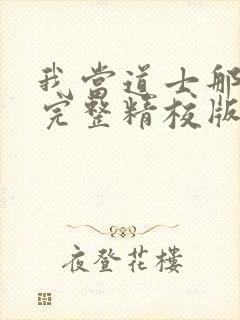 我当道士那
完整精校版
夜登花楼